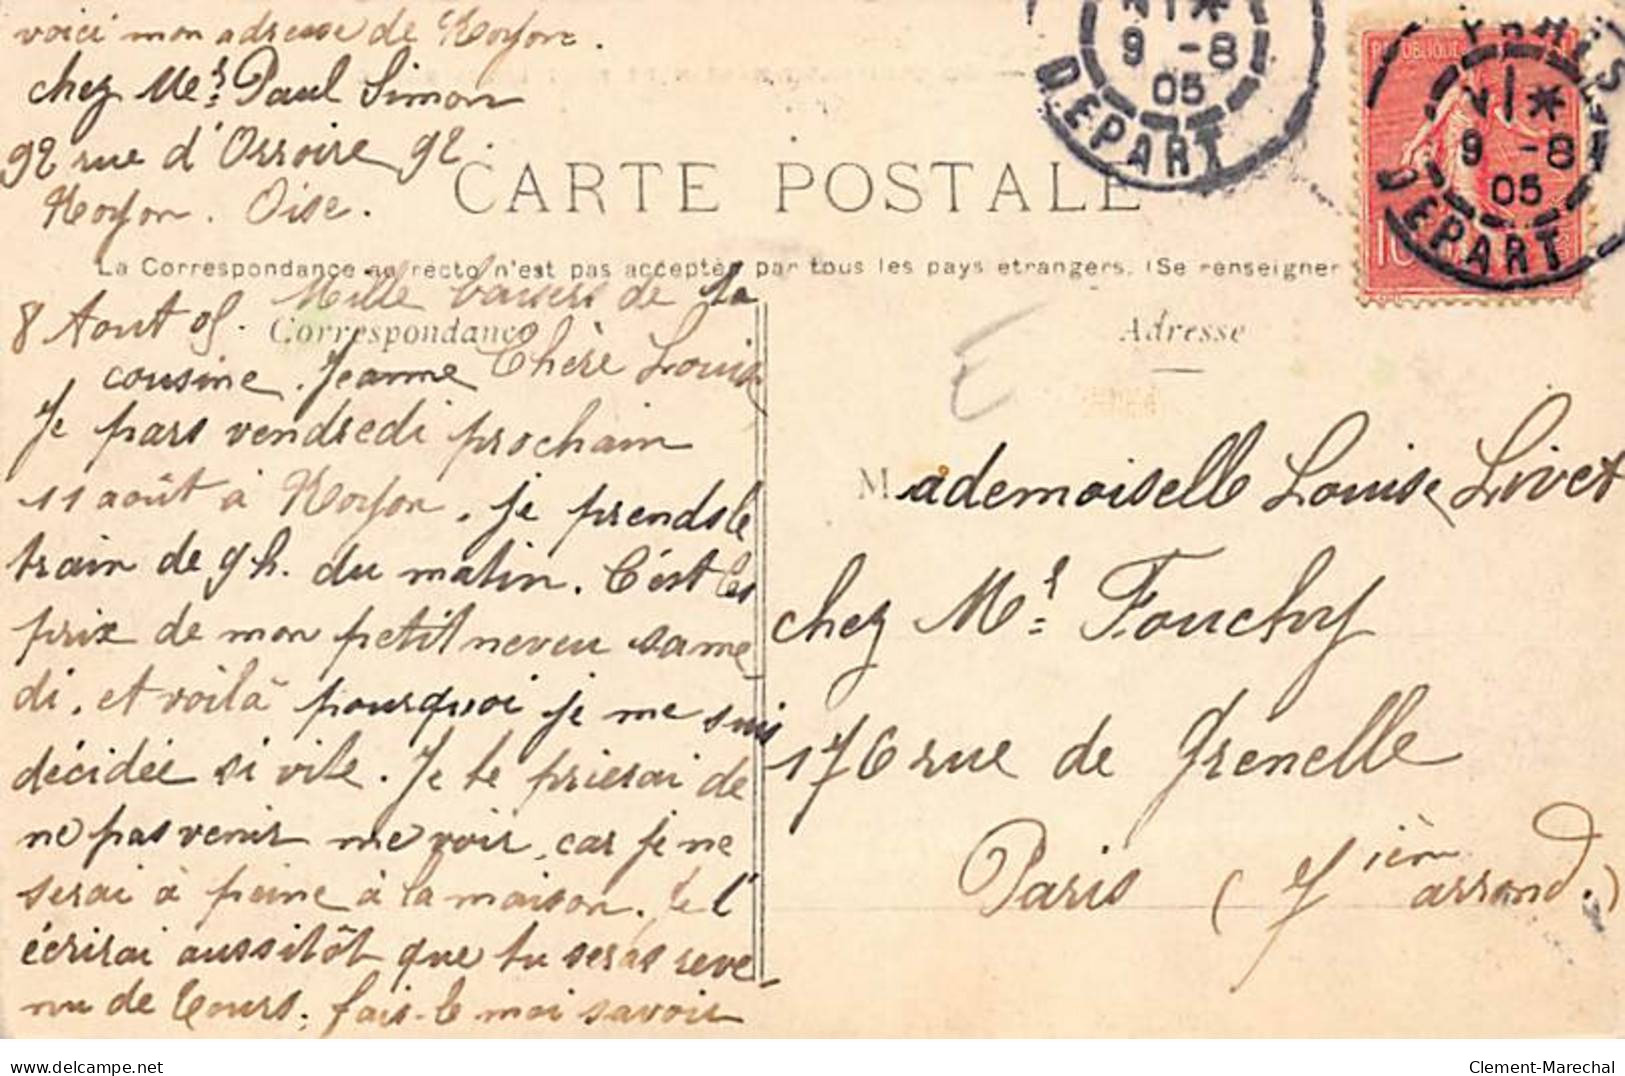 voici mon adresse de Noyon.
chez Mr Paul Simon
92 rue d'Orroire 92.
Noyon. Oise.
CARTE POSTALE
La Correspondance au recto n'est pas acceptée par tous les pays etrangers. (Se renseigner
Mille baisers de ta
8 Août 05. Correspondance
cousine. Jeanne Chère Louise
Je pars vendredi prochain
11 août à Noyon, je prends le
train de 9h. du matin. C'est les
prix de mon petit neveu same
di, et voilà pourquoi je me suis
décidée si vite. Je te prierai de
ne pas venir me voir, car je ne
serai à peine à la maison. Je l'
écrirai aussitôt que tu seras reve-
nu de Tours, fais-le moi savoir
9 -8
05
DEPART
REPUBLIQUE
10
9 -8
05
DEPART
E
Adresse
Mademoiselle Louise Livet
chez Mr Fouchy
176 rue de Grenelle
Paris (7ièm arrond.)
delcampe.net
Clement-Marechal